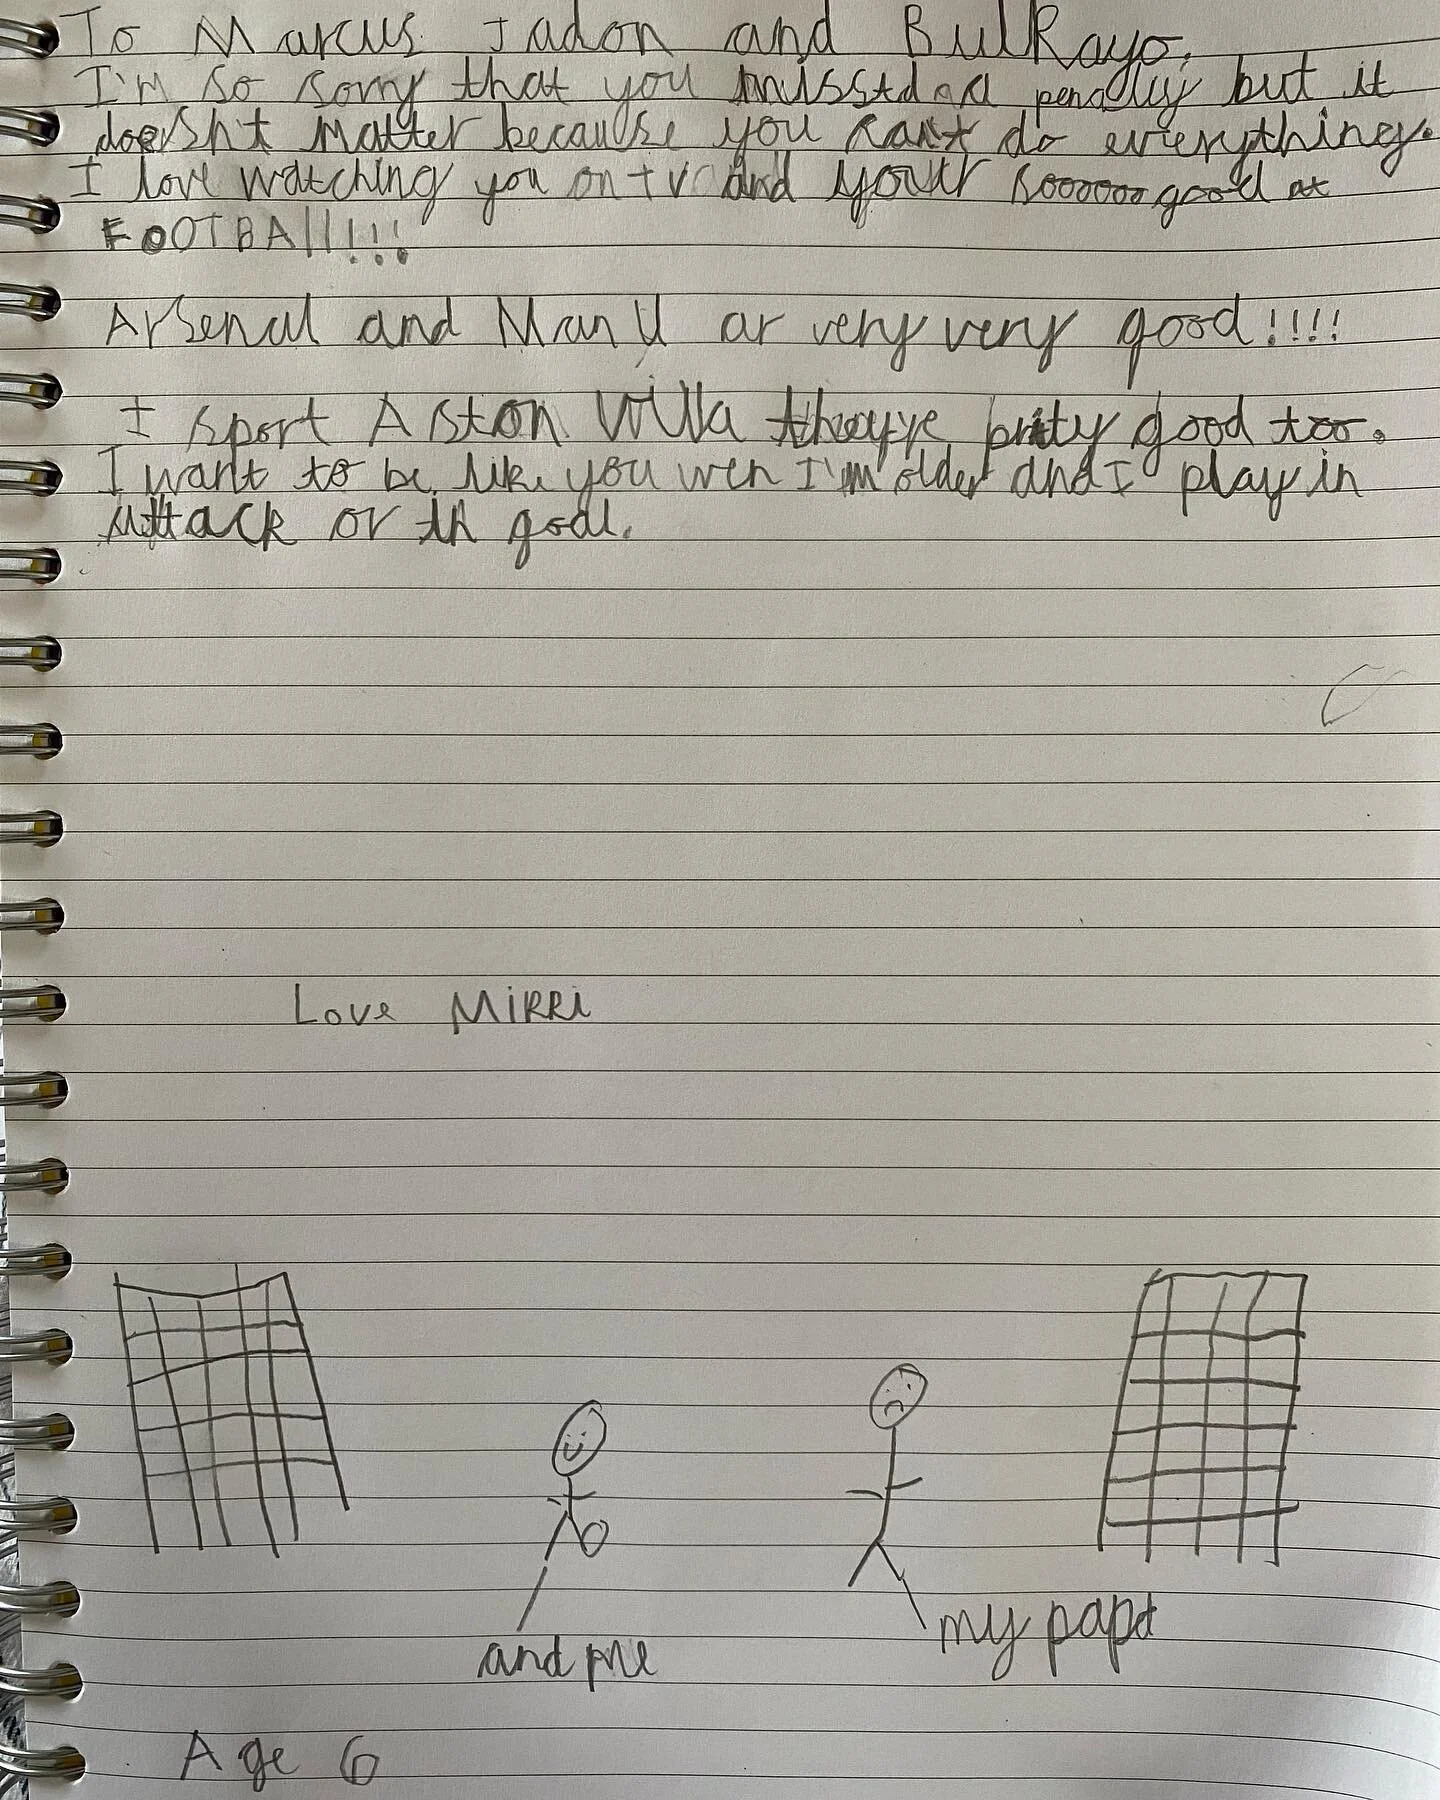 To Marcus Jadon and BulKayo,
I'm so sorry that you misstd a penalty but it
doesn't matter because you can't do everything.
I love watching you on tv and your sooooo good at
FOOTBAll!!!
Arsenal and Man U ar very very good!!!!
I sport Aston Villa they're prity good too.
I want to be like you wen I'm older and I play in
attack or in goal.
Love MiRRi
my papa
and me
Age 6